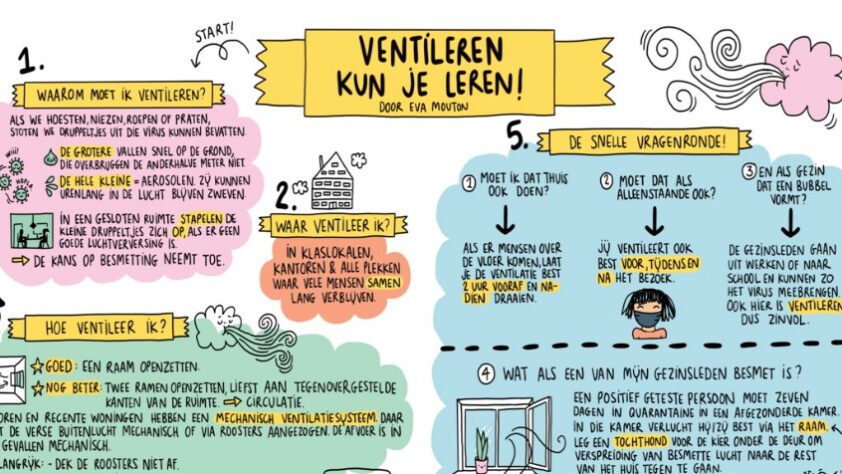 START!
VENTILEREN
KUN JE LEREN!
DOOR EVA MOUTON
1.
WAAROM MOET IK VENTILEREN?
ALS WE HOESTEN, NIEZEN, ROEPEN OF PRATEN,
STOTEN WE DRUPPELTJES UIT DIE VIRUS KUNNEN BEVATTEN.
DE GROTERE VALLEN SNEL OP DE GROND,
DIE OVERBRUGGEN DE ANDERHALVE METER NIET.
DE HELE KLEINE = AEROSOLEN. ZIJ KUNNEN
URENLANG IN DE LUCHT BLIJVEN ZWEVEN.
IN EEN GESLOTEN RUIMTE STAPELEN DE
KLEINE DRUPPELTJES ZICH OP, ALS ER GEEN
GOEDE LUCHTVERVERSING IS.
⇨ DE KANS OP BESMETTING NEEMT TOE.
2.
WAAR VENTILEER IK?
IN KLASLOKALEN,
KANTOREN & ALLE PLEKKEN
WAAR VELE MENSEN SAMEN
LANG VERBLIJVEN.
HOE VENTILEER IK?
GOED: EEN RAAM OPENZETTEN.
NOG BETER: TWEE RAMEN OPENZETTEN, LIEFST AAN TEGENOVERGESTELDE
KANTEN VAN DE RUIMTE. ⇨ CIRCULATIE.
OREN EN RECENTE WONINGEN HEBBEN EEN MECHANISCH VENTILATIESYSTEEM. DAAR
T DE VERSE BUITENLUCHT MECHANISCH OF VIA ROOSTERS AANGEZOGEN. DE AFVOER IS IN
GEVALLEN MECHANISCH.
LANGRIJK: - DEK DE ROOSTERS NIET AF.
5.
DE SNELLE VRAGENRONDE!
1 MOET IK DAT THUIS
OOK DOEN?
ALS ER MENSEN OVER
DE VLOER KOMEN, LAAT
JE DE VENTILATIE BEST
2 UUR VOORAF EN NA-
DIEN DRAAIEN.
2 MOET DAT ALS
ALLEENSTAANDE OOK?
JIJ VENTILEERT OOK
BEST VOOR, TIJDENS EN
NA HET BEZOEK.
3 EN ALS GEZIN
DAT EEN BUBBEL
VORMT?
DE GEZINSLEDEN GAAN
UIT WERKEN OF NAAR
SCHOOL EN KUNNEN ZO
HET VIRUS MEEBRENGEN.
OOK HIER IS VENTILEREN
DUS ZINVOL.
4 WAT ALS EEN VAN MIJN GEZINSLEDEN BESMET IS?
EEN POSITIEF GETESTE PERSOON MOET ZEVEN
DAGEN IN QUARANTAINE IN EEN AFGEZONDERDE KAMER.
IN DIE KAMER VERLUCHT HIJ/ZIJ BEST VIA HET RAAM.
LEG EEN TOCHTHOND VOOR DE KIER ONDER DE DEUR OM
VERSPREIDING VAN BESMETTE LUCHT NAAR DE REST
VAN HET HUIS TEGEN TE GAAN.